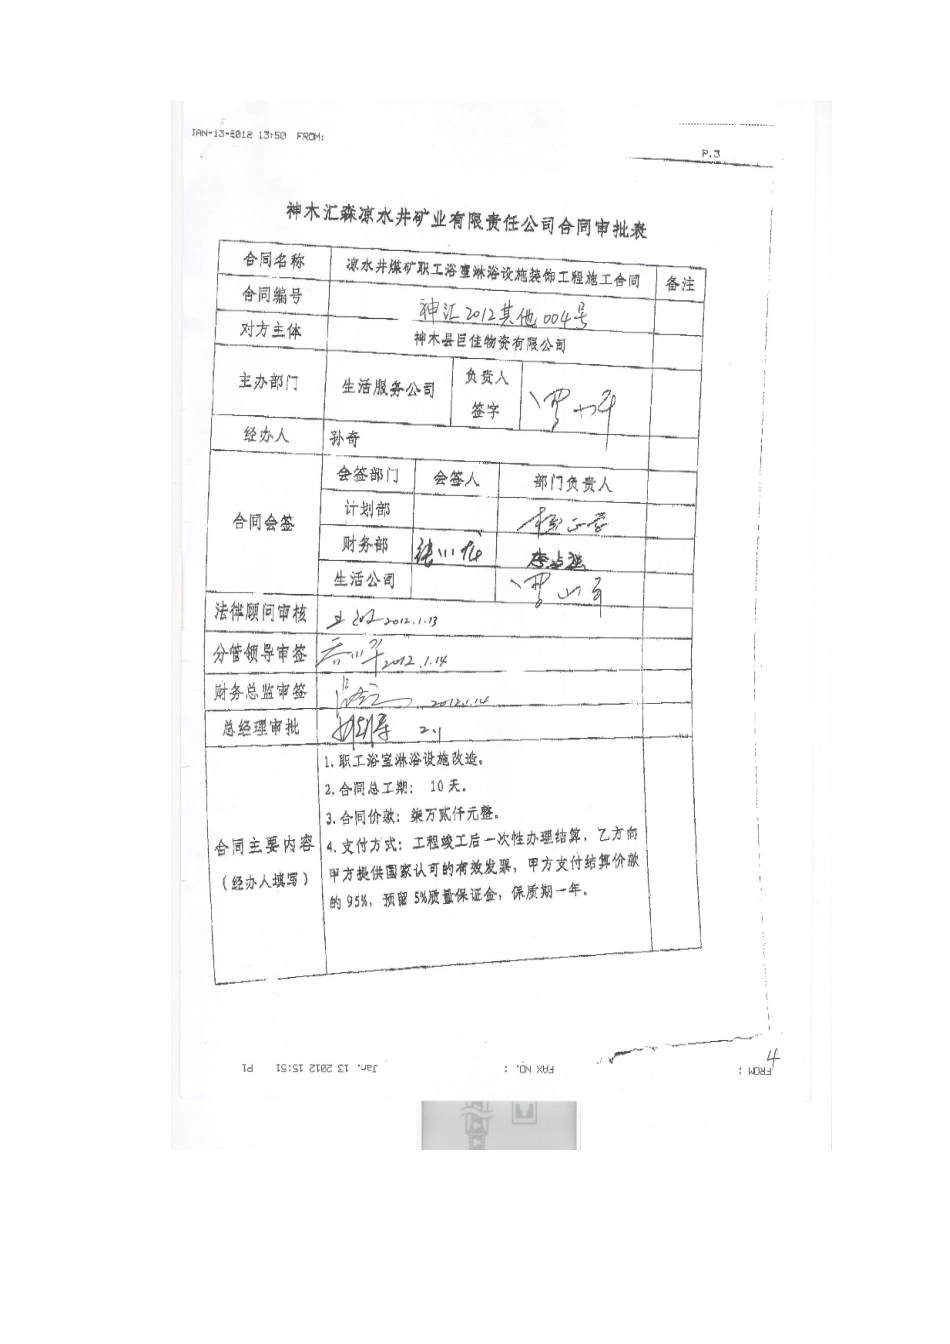 JAN-13-2012 13:50 FROM:
P.3
神木汇森凉水井矿业有限责任公司合同审批表
合同名称 凉水井煤矿职工浴室淋浴设施装饰工程施工合同 备注
合同编号 神汇2012其他004号
对方主体 神木县巨佳物资有限公司
主办部门 生活服务公司 负责人签字
经办人 孙奇
合同会签 会签部门 会签人 部门负责人
计划部
财务部
生活公司
法律顾问审核 2012.1.13
分管领导审签 2012.1.14
财务总监审签 2012.1.14
总经理审批
合同主要内容
（经办人填写）
1.职工浴室淋浴设施改造。
2.合同总工期： 10天。
3.合同价款：柒万贰仟元整。
4.支付方式：工程竣工后一次性办理结算，乙方向
甲方提供国家认可的有效发票，甲方支付结算价款
的95%，预留5%质量保证金，保质期一年。
4
FROM : FAX NO. : Jan. 13 2012 15:51 P1